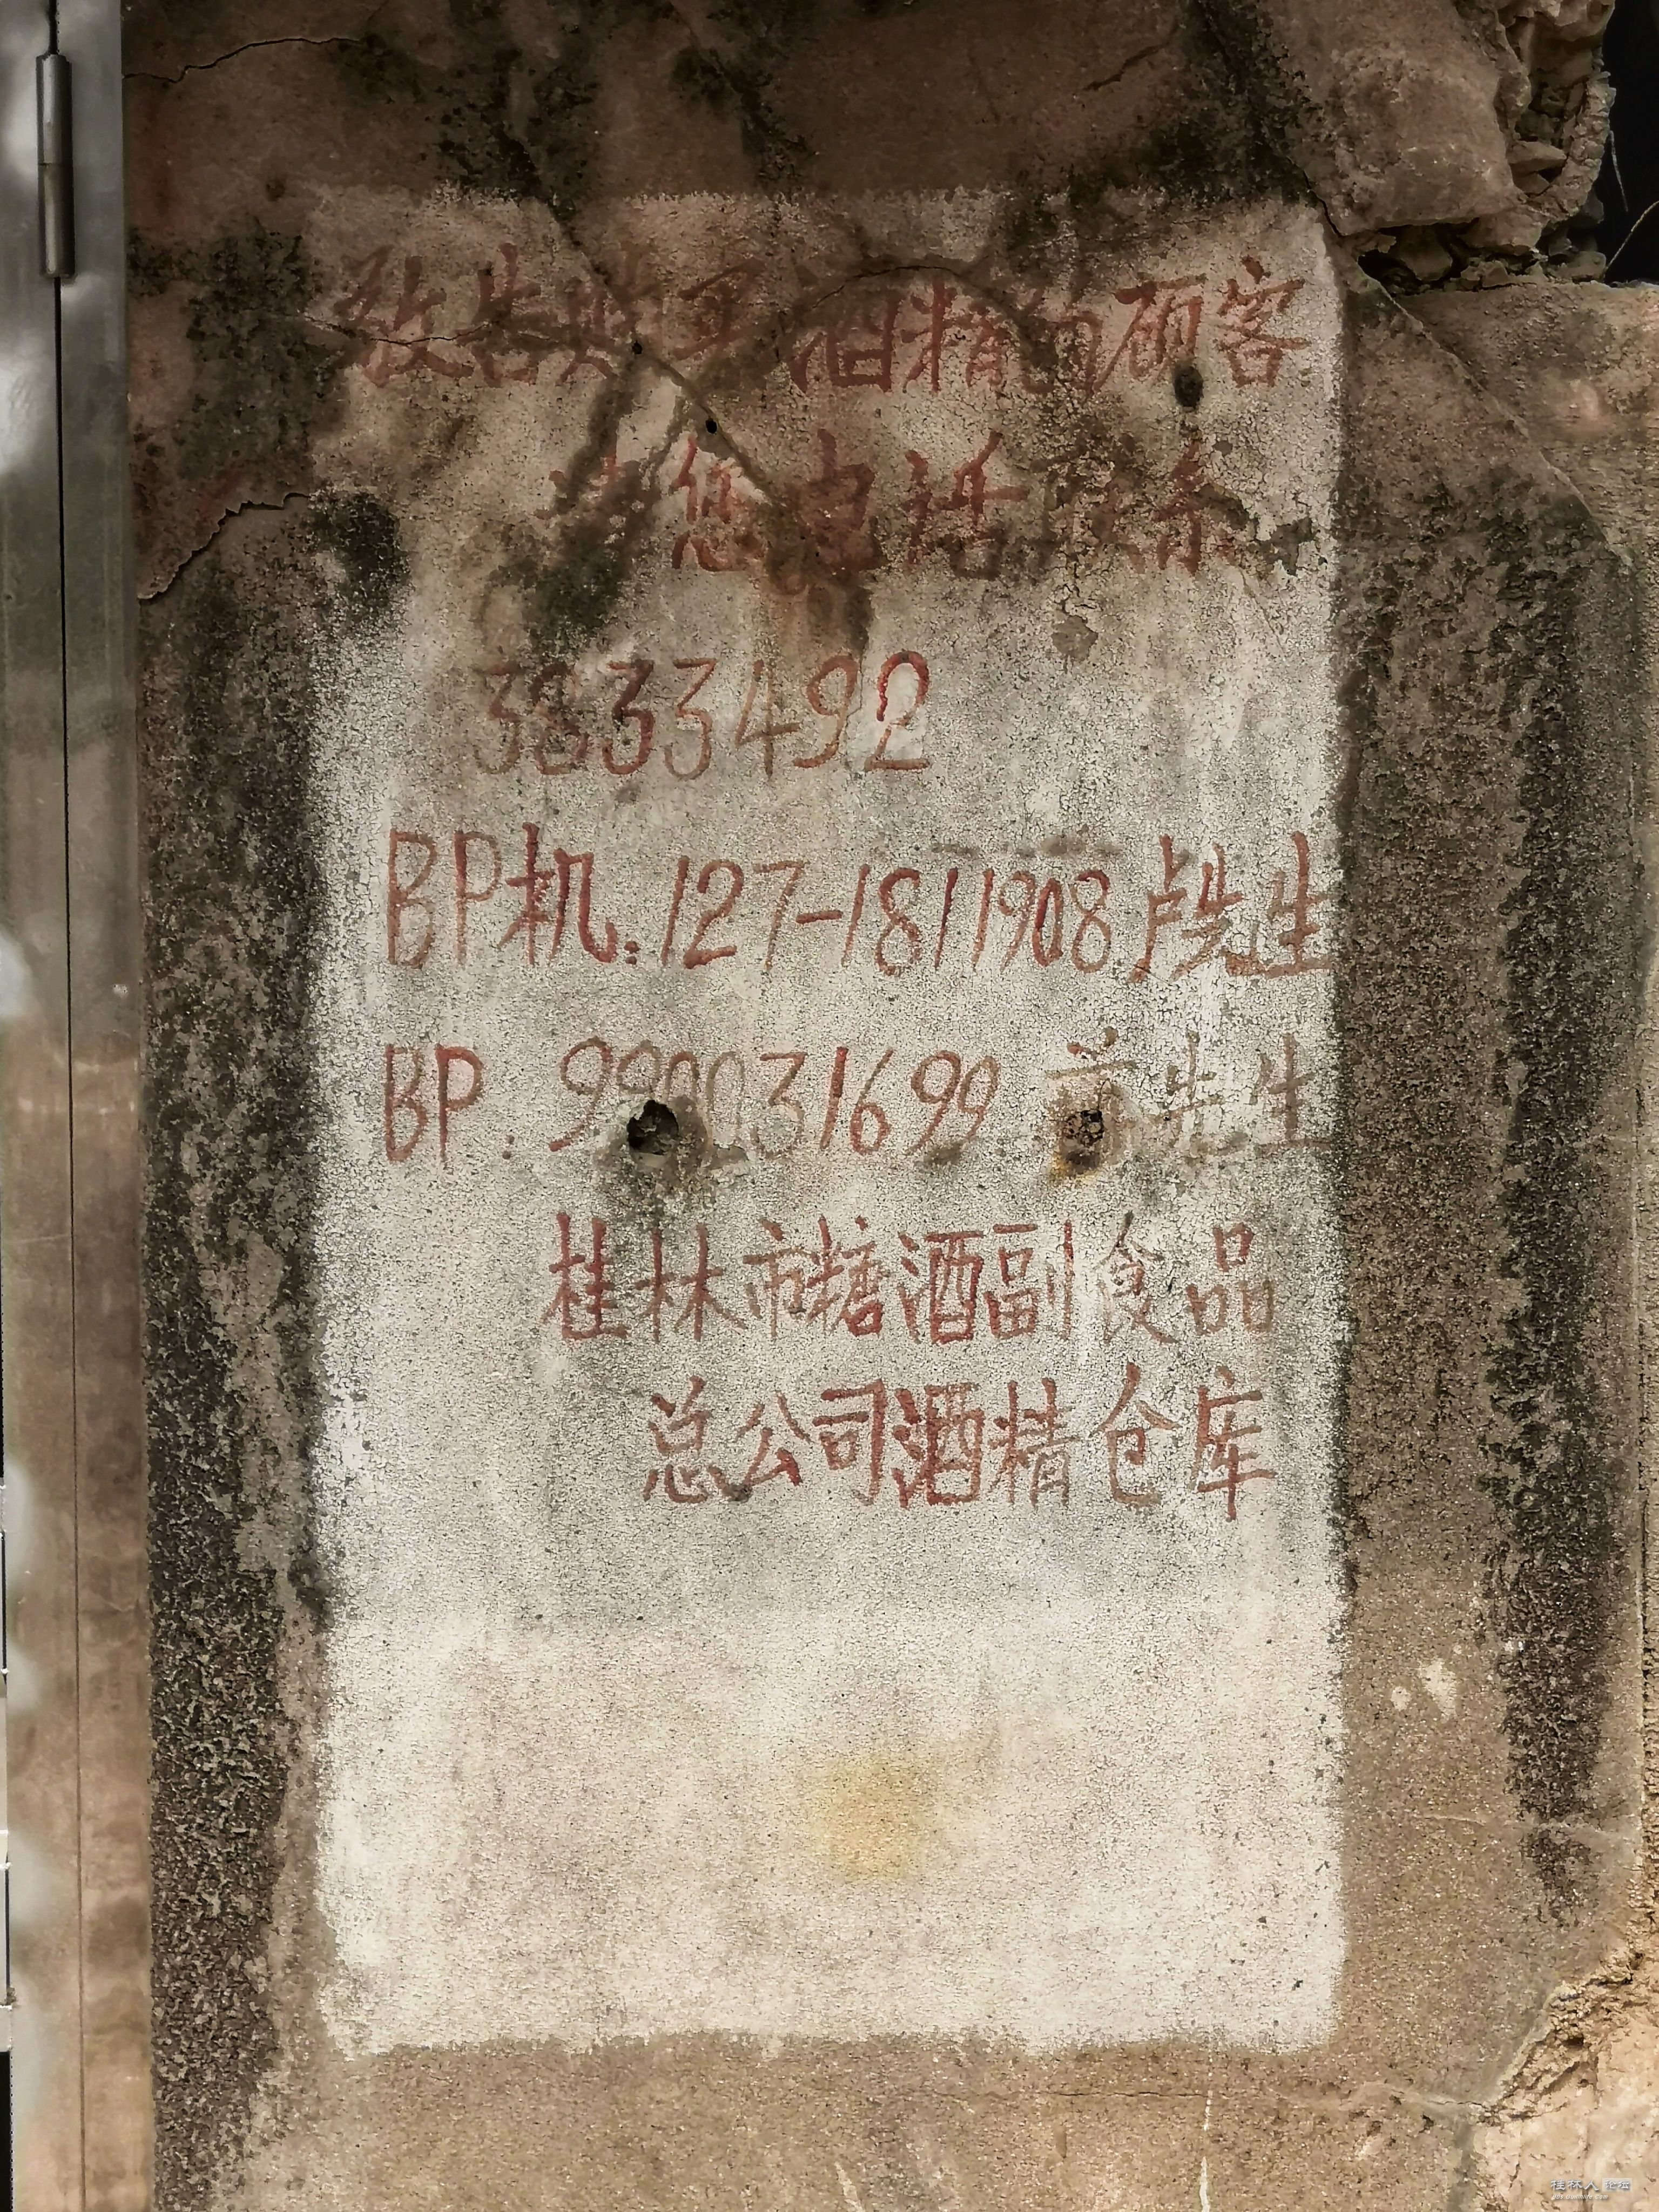 敬告购买酒精的顾客
请您电话联系
3833492
BP机:127-1811908 卢先生
BP.990031699 先生
桂林市糖酒副食品
总公司酒精仓库
桂林人论坛